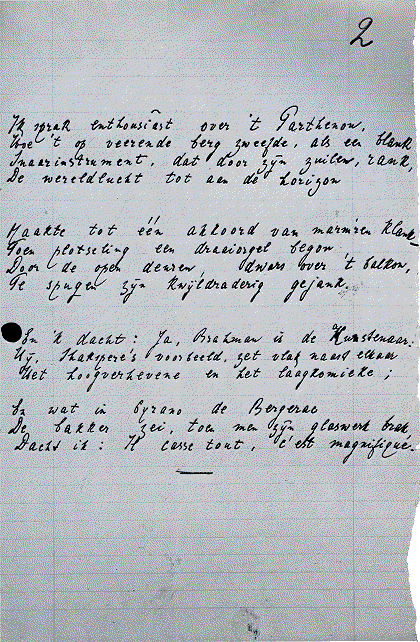 2
Ik sprak enthousiast over 't Parthenon,
Hoe 't op veerende berg zweefde, als een blank
Snaarinstrument, dat door zijn zuilen, rank,
De wereldlucht tot aan de horizon
Maakte tot één akkoord van marm'ren klank,
Toen plotseling een draaiorgel begon
Door de open deuren, dwars over 't balkon,
Te spugen zijn kwijldraderig gejank.
En 'k dacht: Ja, Brahman is de Kunstenaar:
Hij, Shakspere's voorbeeld, zet vlak naast elkaar
Het hoogverhevene en het laagkomieke;
En wat in Cyrano de Bergerac
De bakker zei, toen men zijn glaswerk brak
Dacht ik: Il casse tout, c'est magnifique.